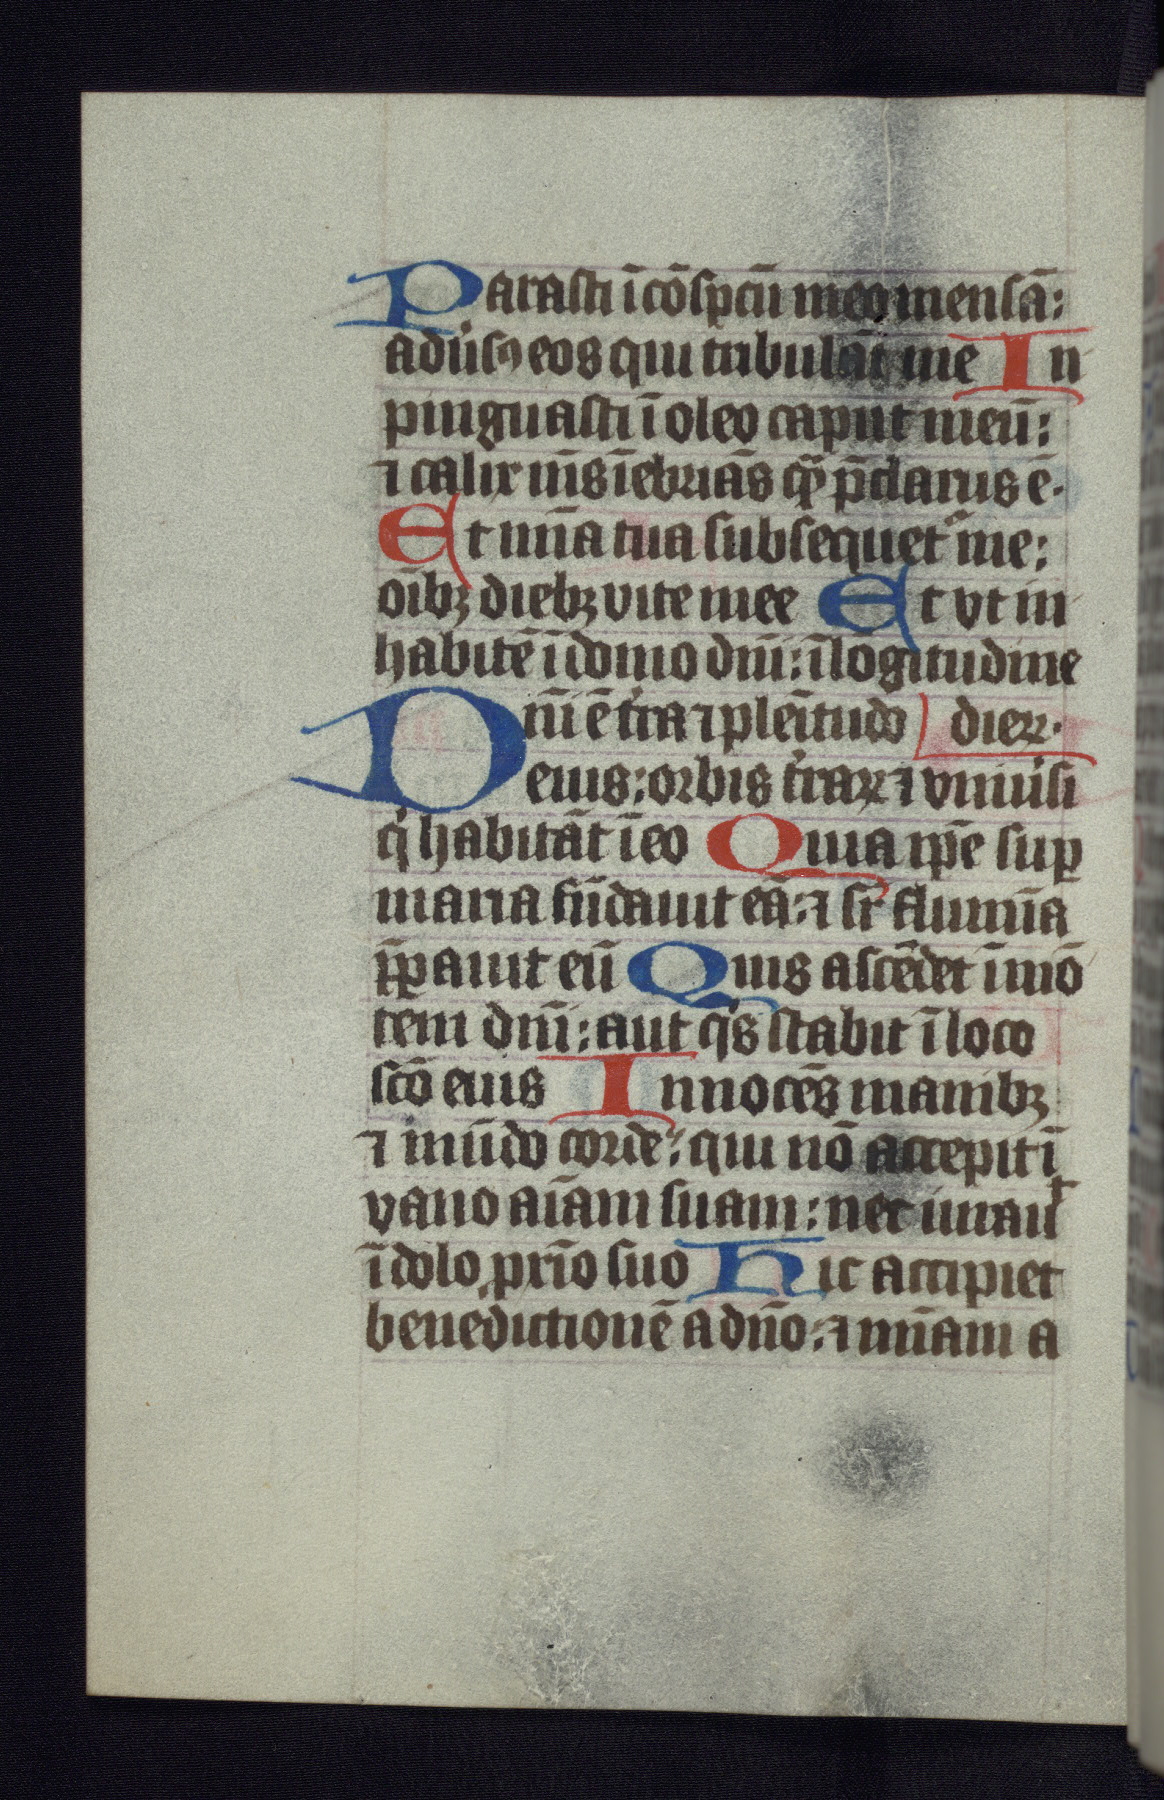 Parasti ī cōsp̄cū meo mensā:
adūsꝰ eos qui tribulāt me In
pinguasti ī oleo caput meū:
⁊ calix mꝰs īebriās qꝫ p̄clarus ē.
Et mīa tua subsequet᷑ me:
oībꝫ diebꝫ vite mee Et vt in
habitē ī domo dn̄i: ī lōgitudine
Dn̄i ē t̓ra ⁊ plēitudo dieꝝ.
eius: orbis t̓raꝝ ⁊ vniūsi
q̓ habitāt ī eo Quia ip̄e suꝑ
maria fūdauit eā: ⁊ sr̄ flumīa
p̄ꝑauit eū Quis ascēdet ī mō
tem dn̄i: aut q̓s stabit ī loco
scō eius Innocēs manibꝫ
⁊ mūdo corde: qui nō accepit ī
vano aīam suam: nec iurauͭ
ī dolo ꝓxīo suo Hic accipiet
benedictionē a dn̄o: ⁊ mīam a